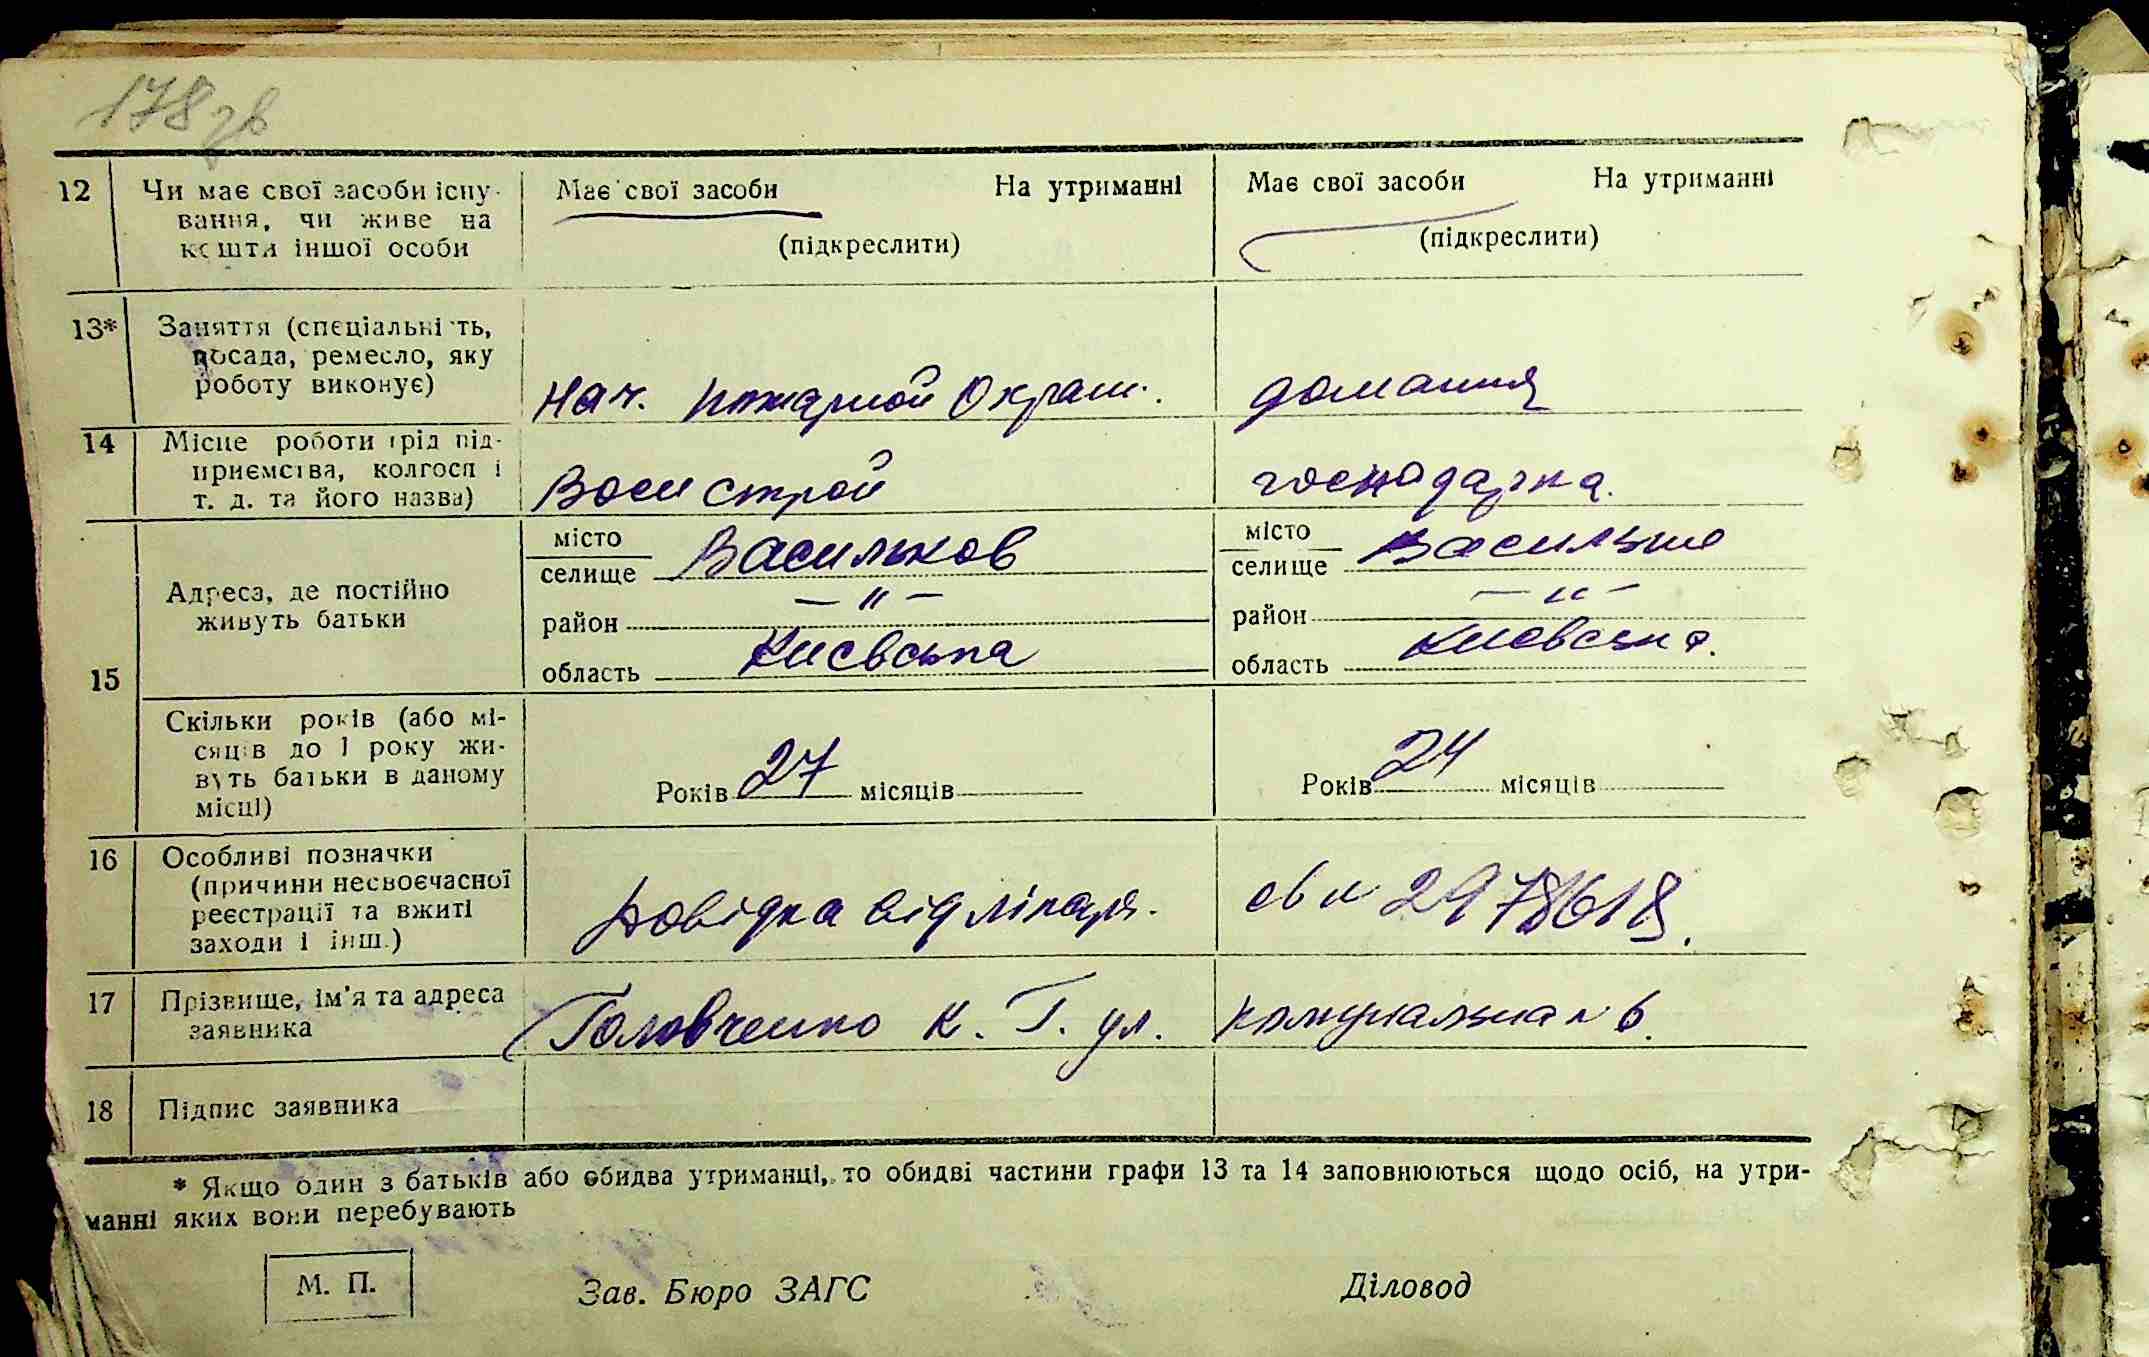 178 зв
12 Чи має свої засоби існу- Має свої засоби На утриманні Має свої засоби На утриманні
вання, чи живе на
кошти іншої особи (підкреслити) (підкреслити)
13* Заняття (спеціальність,
посада, ремесло, яку
роботу виконує) Нач. пожарной Охран. домашня
14 Місце роботи (рід під-
приємства, колгосп і
т. д. та його назва) Воен строй господарка.
15 Адреса, де постійно
живуть батьки
місто
селище Васильков
район — " —
область Киевська
місто
селище
район — " —
область Киевська.
Скільки років (або мі-
сяців до 1 року жи-
вуть батьки в даному
місці)
Років 27 місяців Років 24 місяців
16 Особливі позначки
(причини несвоєчасної
реєстрації та вжиті
заходи і інш.)
Довідка від лікаря. св н 2978618.
17 Прізвище, ім'я та адреса
заявника
Головченко К. Г. ул. Комунальна н 6.
18 Підпис заявника
* Якщо один з батьків або обидва утриманці, то обидві частини графи 13 та 14 заповнюються щодо осіб, на утри-
манні яких вони перебувають
М. П. Зав. Бюро ЗАГС Діловод